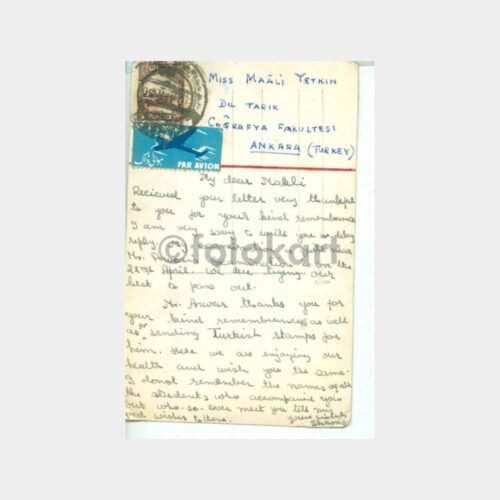 MISS MAÂLI YETKIN
DIL TARIK
COĞRAFYA FAKULTESI
ANKARA (TURKEY)
ہوائی ڈاک
PAR AVION
My dear Maali
Recieved your letter very thankful
to you for your kind remembrance
I am very sorry to write you a delay
reply. is quite near
Mr. Anwar's examination is on the
22nd April. We are trying our
best to pass out.
Mr. Anwar thanks you for
your kind remembrance as well
as sending Turkish stamps for
him. Here we are enjoying our
health and wish you the same.
I donot remember the names of all
the students who accompanied you
but who-so-ever meet you tell my
good wishes to them.
yours sincerely
Shams
©fotokart